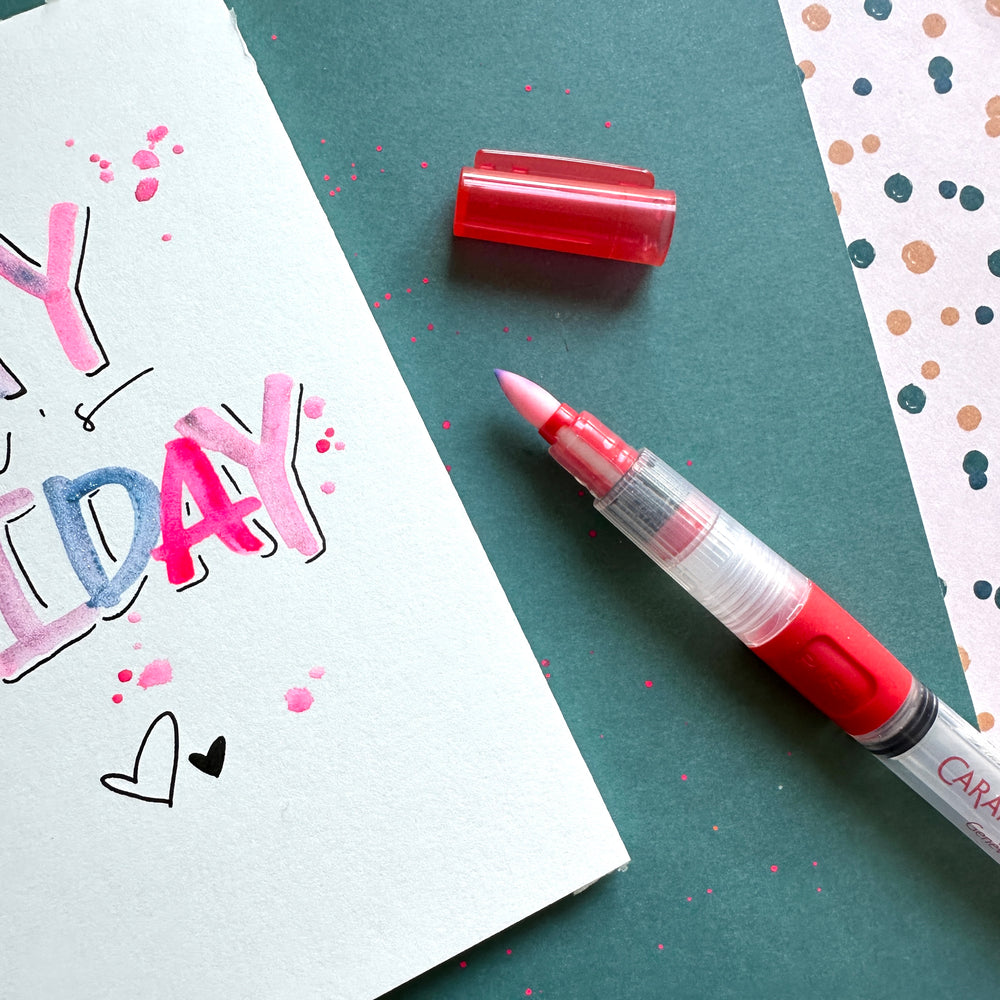 Y
's
IDAY
CARA
Genev